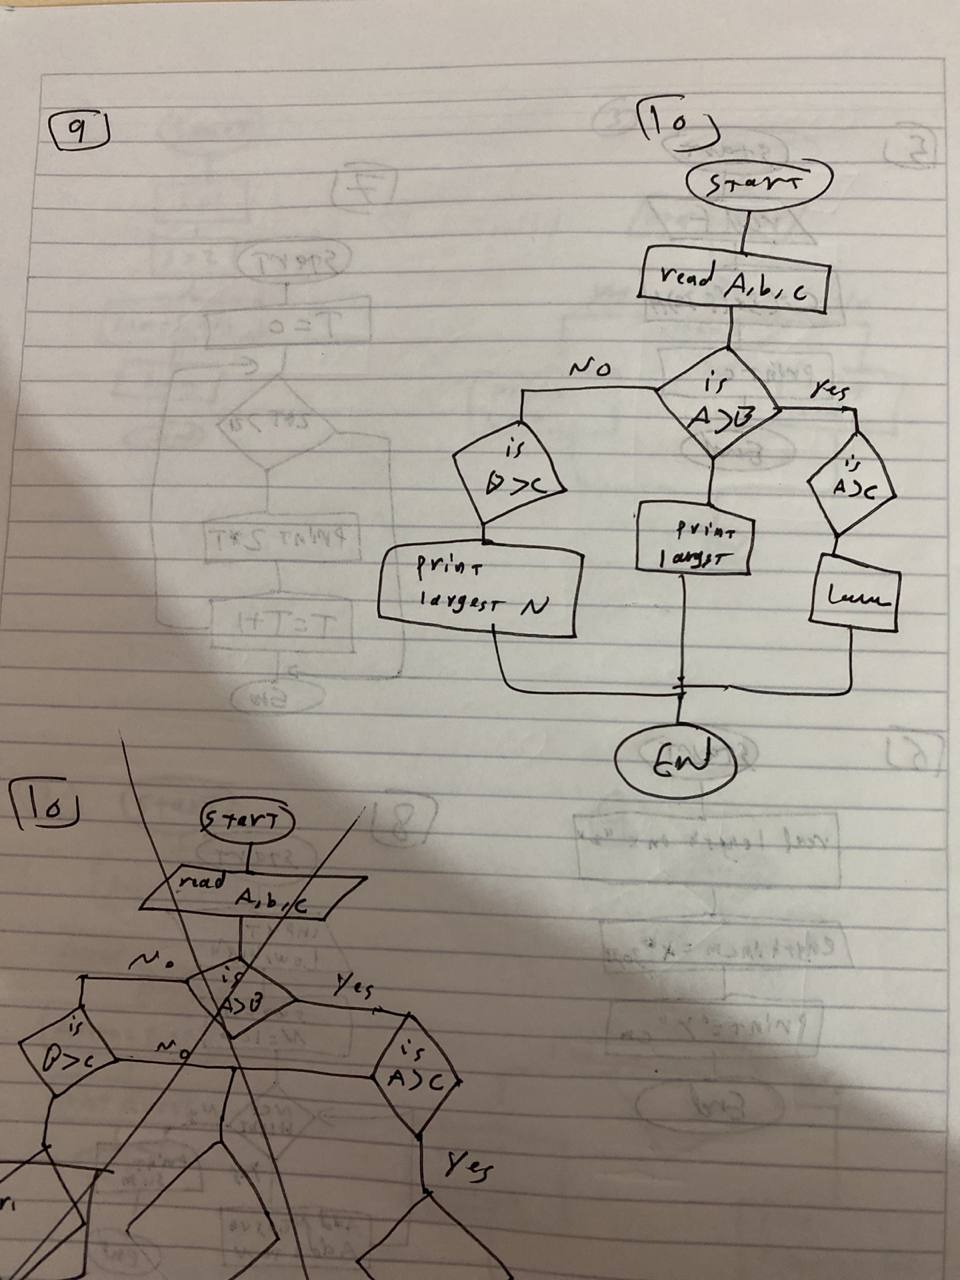 9
10
START
read A,b,c
No
is
A>B
Yes
is
B>C
is
A>C
print
largest N
print
largst
End
10
START
read
A,b,c
No
is
A>B
Yes
is
B>C
No
is
A>C
Yes